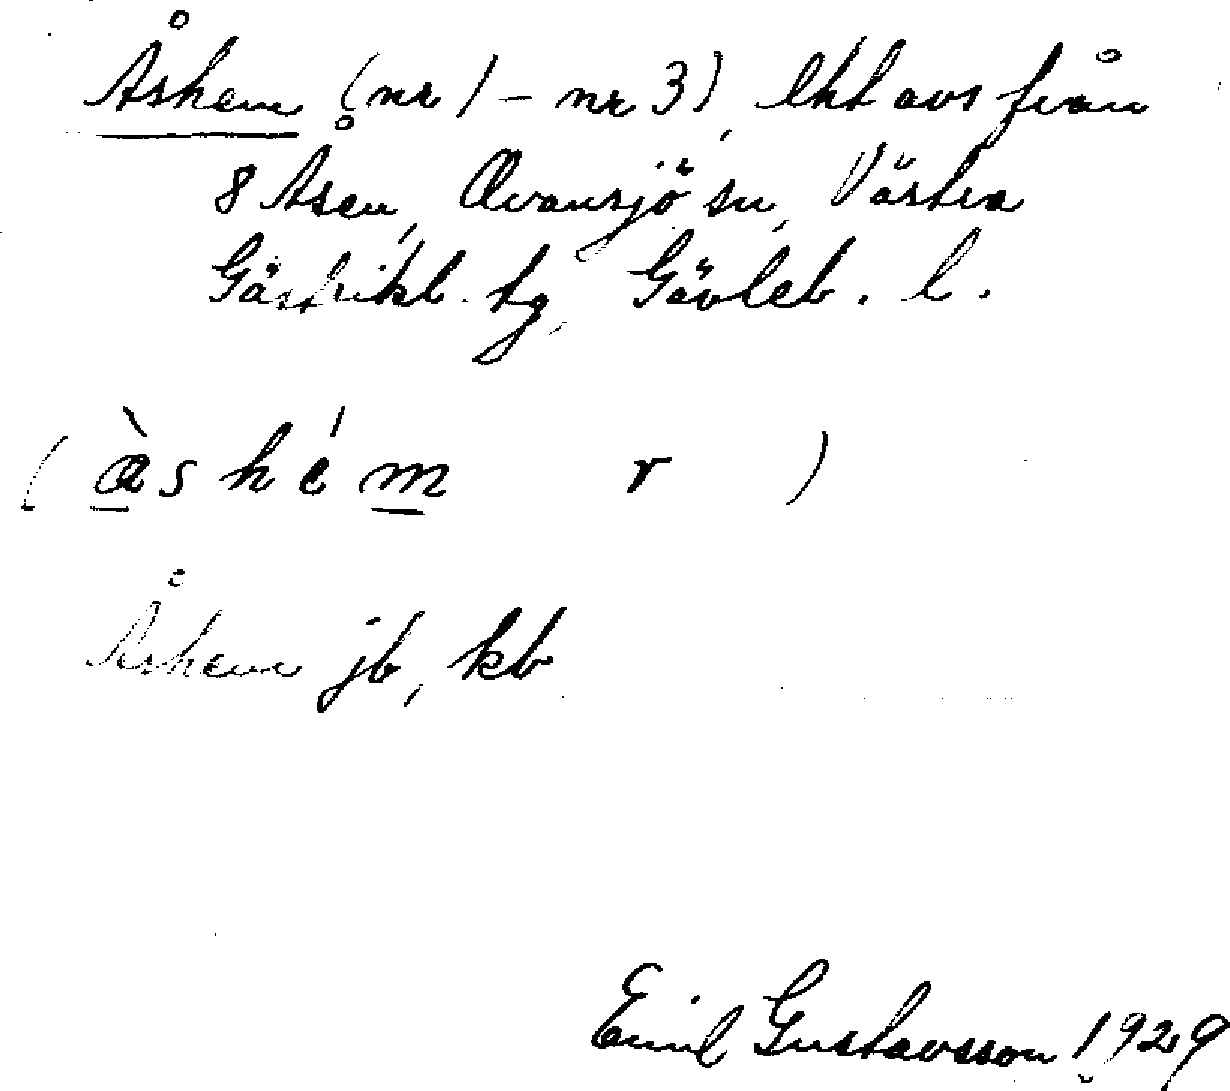 Åshem (nr 1 - nr 3), lht avs från
8 Åsen, Ovansjö sn, Västra
Gästrikl. tg, Gävleb. l.
(àshém r)
Åshem jb, kb
Emil Gustavsson 1929